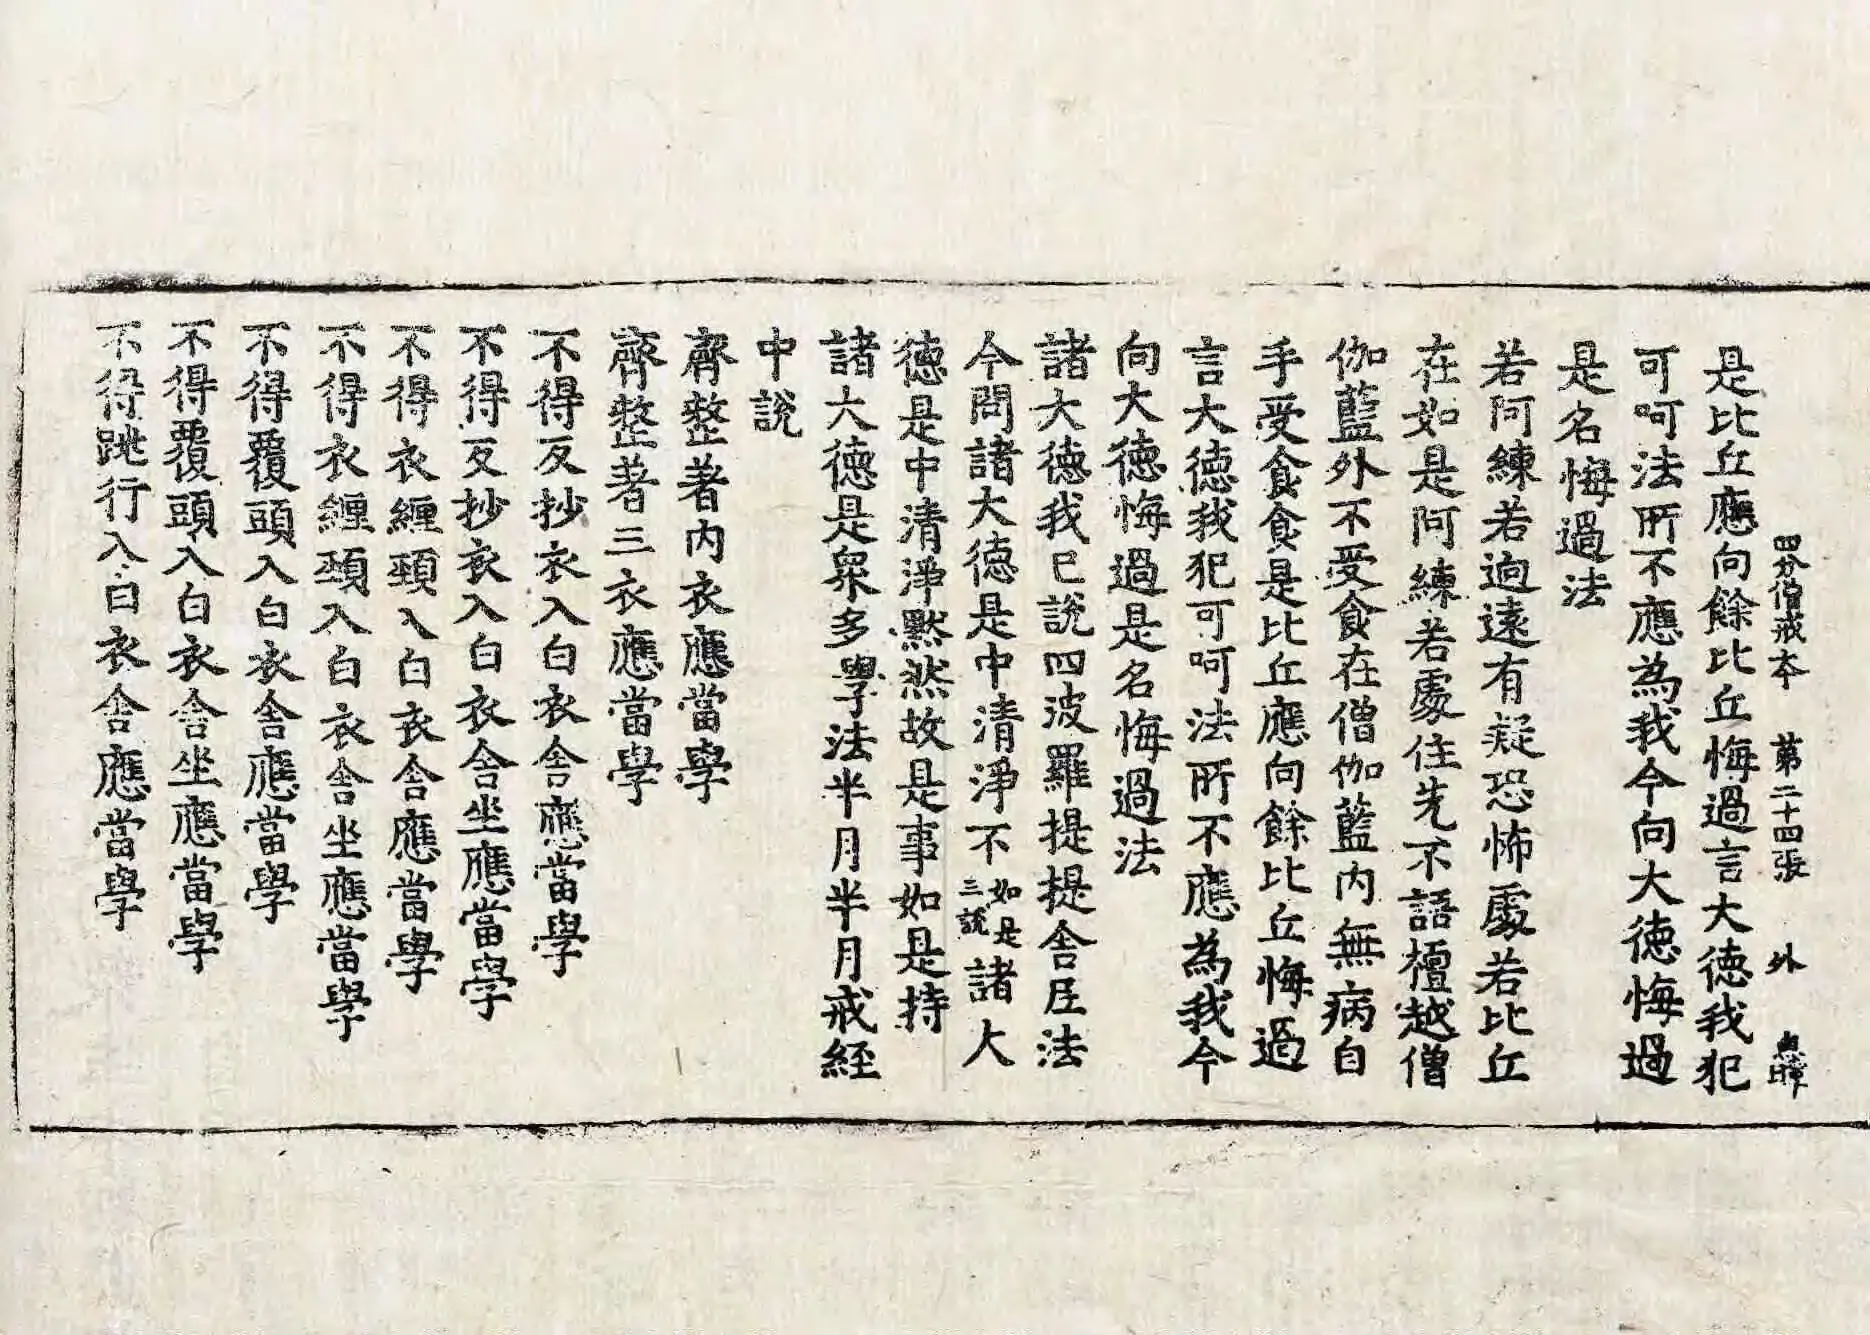 四分僧戒本 第二十四張 外
是比丘應向餘比丘悔過言大德我犯
可呵法所不應為我今向大德悔過
是名悔過法
若阿練若逈遠有疑恐怖處若比丘
在如是阿練若處住先不語檀越僧
伽藍外不受食在僧伽藍內無病自
手受食食是比丘應向餘比丘悔過
言大德我犯可呵法所不應為我今
向大德悔過是名悔過法
諸大德我已說四波羅提提舍尼法
今問諸大德是中清淨不如是三說諸大
德是中清淨默然故是事如是持
諸大德是眾多學法半月半月戒經
中說
齊整著內衣應當學
齊整著三衣應當學
不得反抄衣入白衣舍應當學
不得反抄衣入白衣舍坐應當學
不得衣纏頸入白衣舍應當學
不得衣纏頸入白衣舍坐應當學
不得覆頭入白衣舍應當學
不得覆頭入白衣舍坐應當學
不得跳行入白衣舍應當學